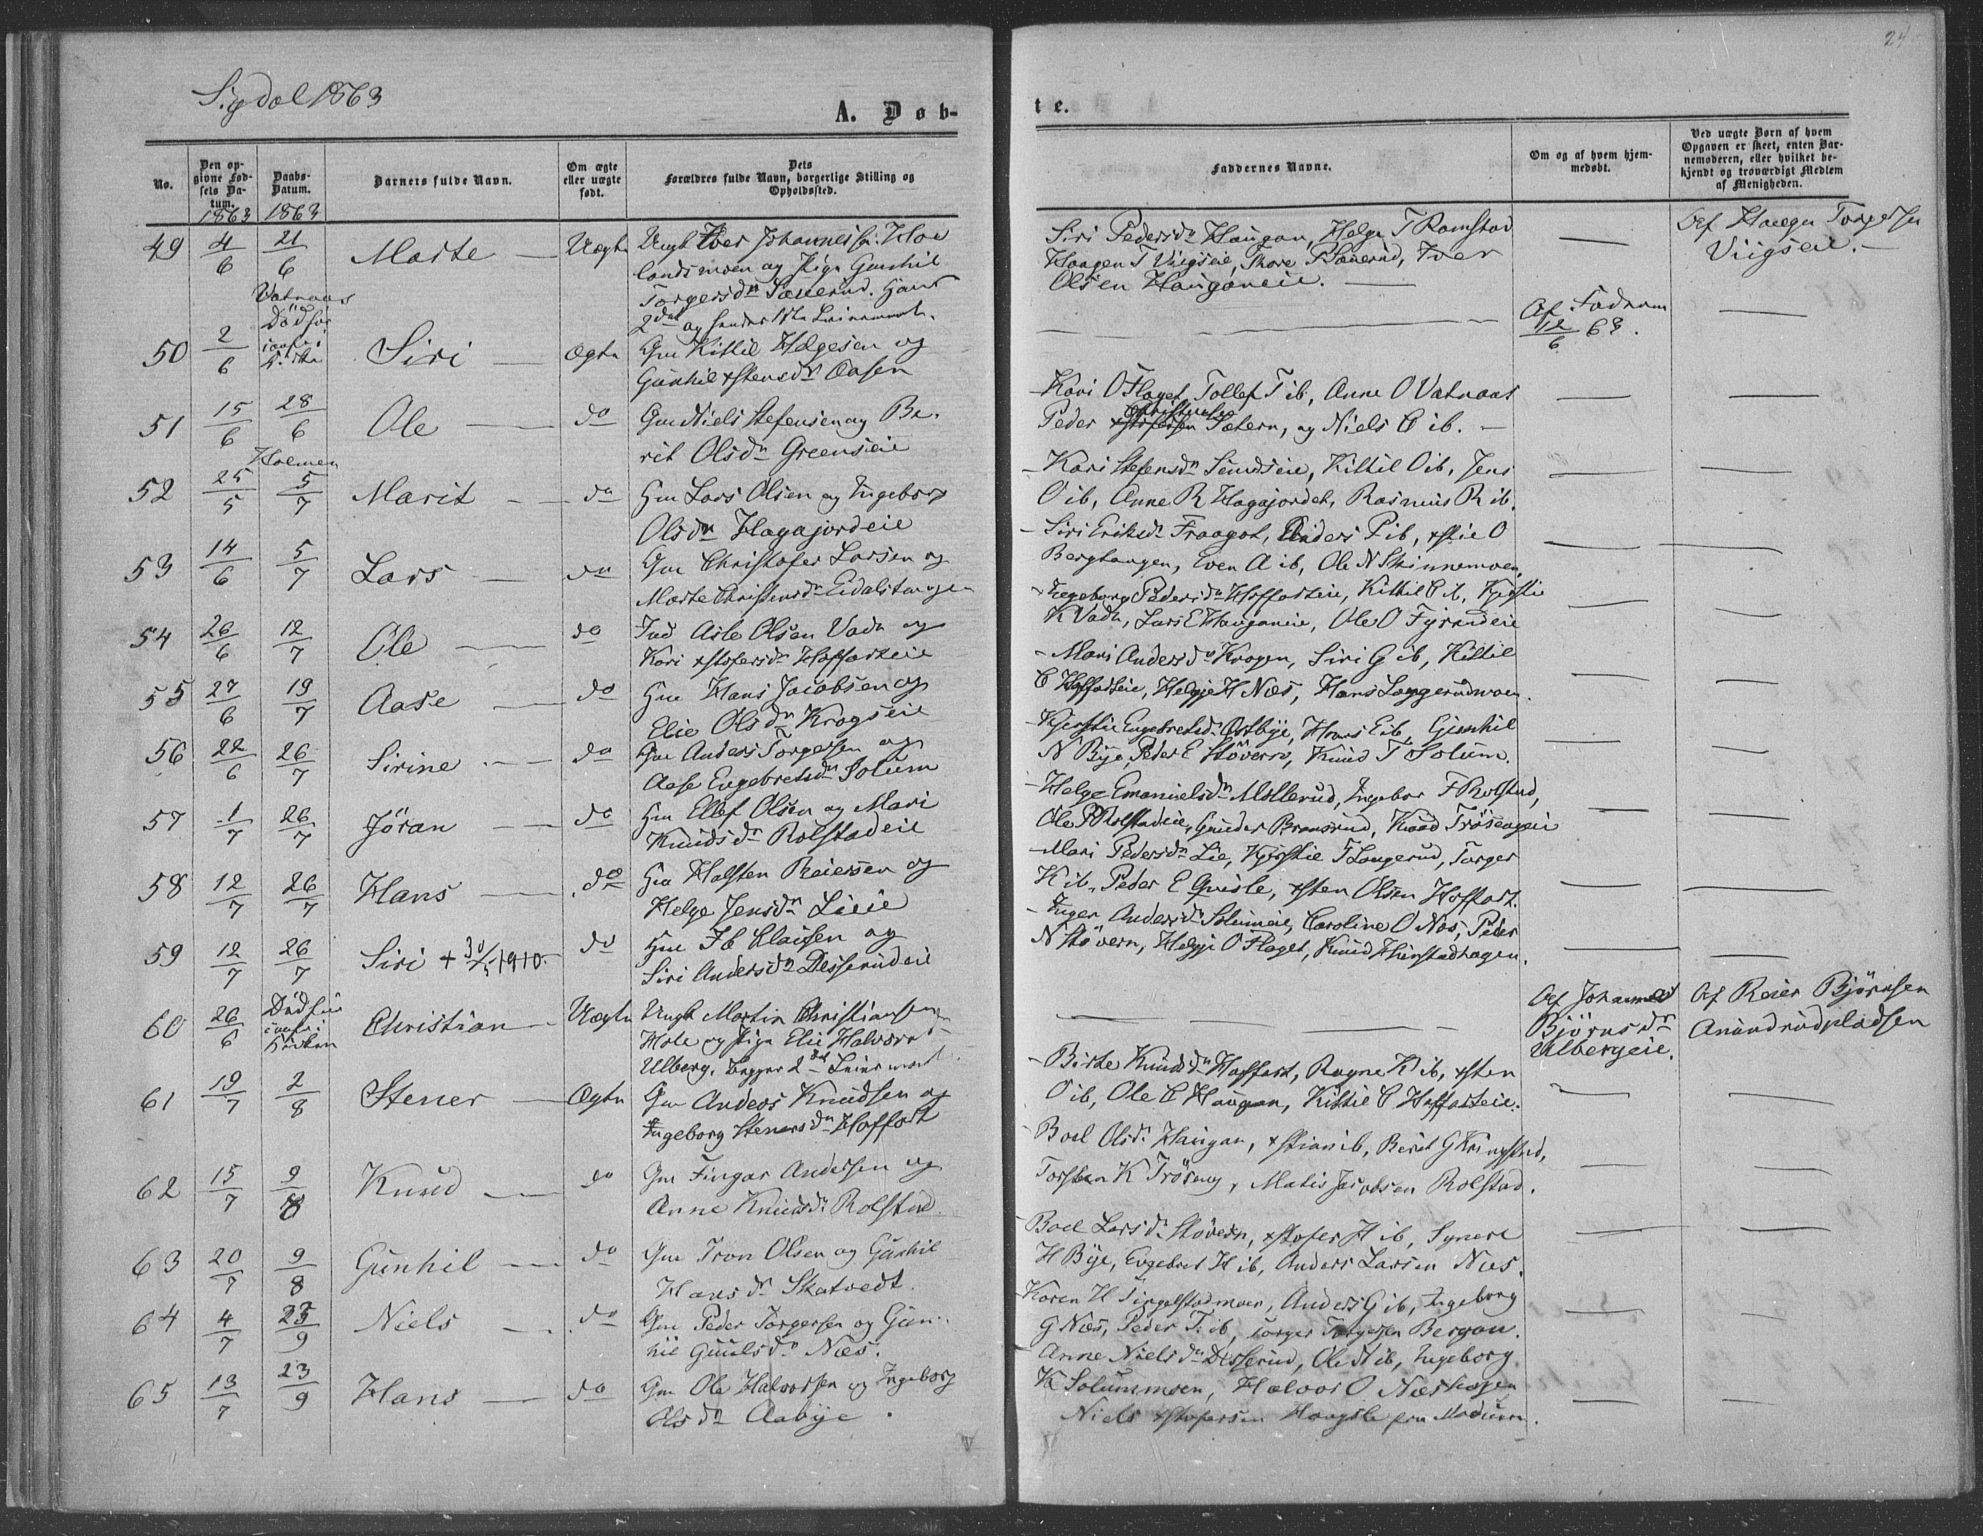 24
Sigdal 1863
A. Døb-
te.
No.
Den op-
givne Fød-
sels Da-
tum.
1863
Daabs-
Datum.
1863
Barnets fulde Navn.
Om ægte
eller uægte
født.
Dets
Forældres fulde Navn, borgerlige Stilling og
Opholdssted.
Faddernes Navne.
Om og af hvem hjem-
medøbt.
Ved uægte Børn af hvem
Opgaven er skeet, enten Bar-
nemoderen, eller hvilket be-
kjendt og troværdigt Medlem
af Menigheden.
49 4/6 21/6 Marte Uægte Ungk Iver Johannessen
og Pige Gunhil
Torgersdr Sænerud. Hans
2det og hendes 1ste Leiermaal.
Siri Pedersdr Haugan, Helge T Ramstad
Haagen T Viigseie, Thore Sænerud, Iver
Olsen Hauganeie.
Af Haagen Torgersen
Viigseie.
Vatnaas
50 2/6 Død før Siri Ægte Gm Kittil Helgesen og
Gunhil xstensdr Aasen
Af Faderen
12/6 63.
51 15/6 28/6 Ole do Gm Niels Stefensen og Be-
rit Olsdr Greenseie
Kari O Flaget, Tollef T ib, Anne O Vatnaas
Peder Sætern, og Niels C ib.
Holmen
52 25/5 5/7 Marit do Gm Lars Olsen og Ingeborg
Olsdr Hagajordeie
Kari Stefensdr, Kittil O ib, Jens
O ib, Anne R Hagajordet, Rasmus R ib.
53 14/6 5/7 Lars do Gm Christofer Larsen og
Marte Christensdr Eidalstangen
Siri Eriksdr Fraagot, Anders P ib, xstie O
Bergtangen, Even A ib, Ole N Skinnemoen.
54 26/6 12/7 Ole do Ind Asle Olsen Vada og
Kari xstofersdr Hoffarteie
Ingeborg Pedersdr Hoffarteie, Kittil C ib, Kjerstie
K Vada, Lars E Hauganeie, Ole O
55 27/6 19/7 Aase do Gm Hans Jacobsen og
Elie Olsdr Krogseie
Mari Andersdr Krogen, Siri G ib, Kittil
C Hoffarteie, Helgje H Næs, Hans Langerudmoen.
56 22/6 26/7 Sirine do Gm Anders Torgersen og
Aase Engebretsdr Solum
Kjerstie Engebretsdr, Hans E ib, Gunhil
N Bye, Peder E Støvern, Knud T Solum.
57 1/7 26/7 Jøran do Gm Ellef Olsen og Mari
Knudsdr Rolstadeie
Helge Emanuelsdr Mollerud, Ingebor F Rolstad,
Ole P Rolstadeie, Gunder, Knud Trøsengeie
58 12/7 26/7 Hans do Gm Halsten Reiersen og
Helge Jensdr Lieie
Mari Pedersdr Lie, Kjerstie T Langerud, Torger
K ib, Peder E Qvisle, xsten Olsen Hoffart.
59 12/7 26/7 Siri + 30/5 1910. do Gm Ib Clausen og
Siri Andersdr Disserudeie
Inger Andersdr Solumeie, Caroline O Næs, Peder
N Støvern, Helgje O Flaget, Knud
60 26/6 Død før Christian Uægte Ungk Martin Christiansen
Hole og Pige Elie Halvorsdr
Ulberg. Begges 2det Leiermaal.
Af Johanne
Bjørnsdr
Ulbergeie.
Af Reier Bjørnsen
Anundrudpladsen
61 19/7 2/8 Stener Ægte Gm Anders Knudsen og
Ingeborg Stenersdr Hoffart
Birte Knudsdr Hoffart, Ragne K ib, xsten
O ib, Ole C Haugan, Kittil C Hoffarteie.
62 15/7 9/8 Knud do Gm Fingar Andersen og
Anne Knudsdr Rolstad.
Boel Olsdr Haugan, xstian ib, Berit G Kringstad,
Torsten K Trøseng, Matis Jacobsen Rolstad.
63 20/7 9/8 Gunhil do Gm Tron Olsen og Gunhil
Hansdr Skatvedt.
Boel Larsdr Støvern, xstofer H ib, Synert
H Bye, Engebret H ib, Anders Larsen Næs.
64 4/7 23/9 Niels do Gm Peder Torgersen og Gun-
hil Guulsdr Næs.
Karen H Tingelstadmoen, Anders G ib, Ingeborg
G Næs, Peder T ib, Torger Torgersen Bergan.
65 13/7 23/9 Hans do Gm Ole Halvorsen og Ingeborg
Olsdr Aabye.
Anne Nielsdr Disserud, Ole N ib, Ingeborg
K Solummoen, Halvor O Næshagen
Niels xstofersen Haugsle fra Modum.